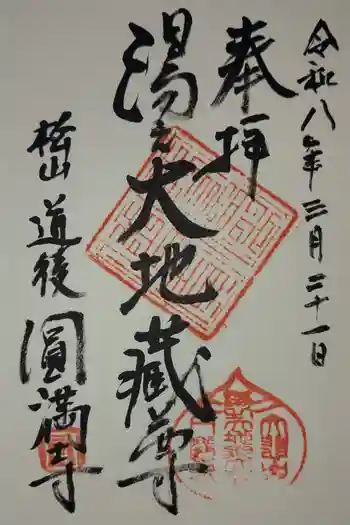 令和八年三月二十一日
奉拝
湯之大地蔵尊
松山 道後
圓満寺